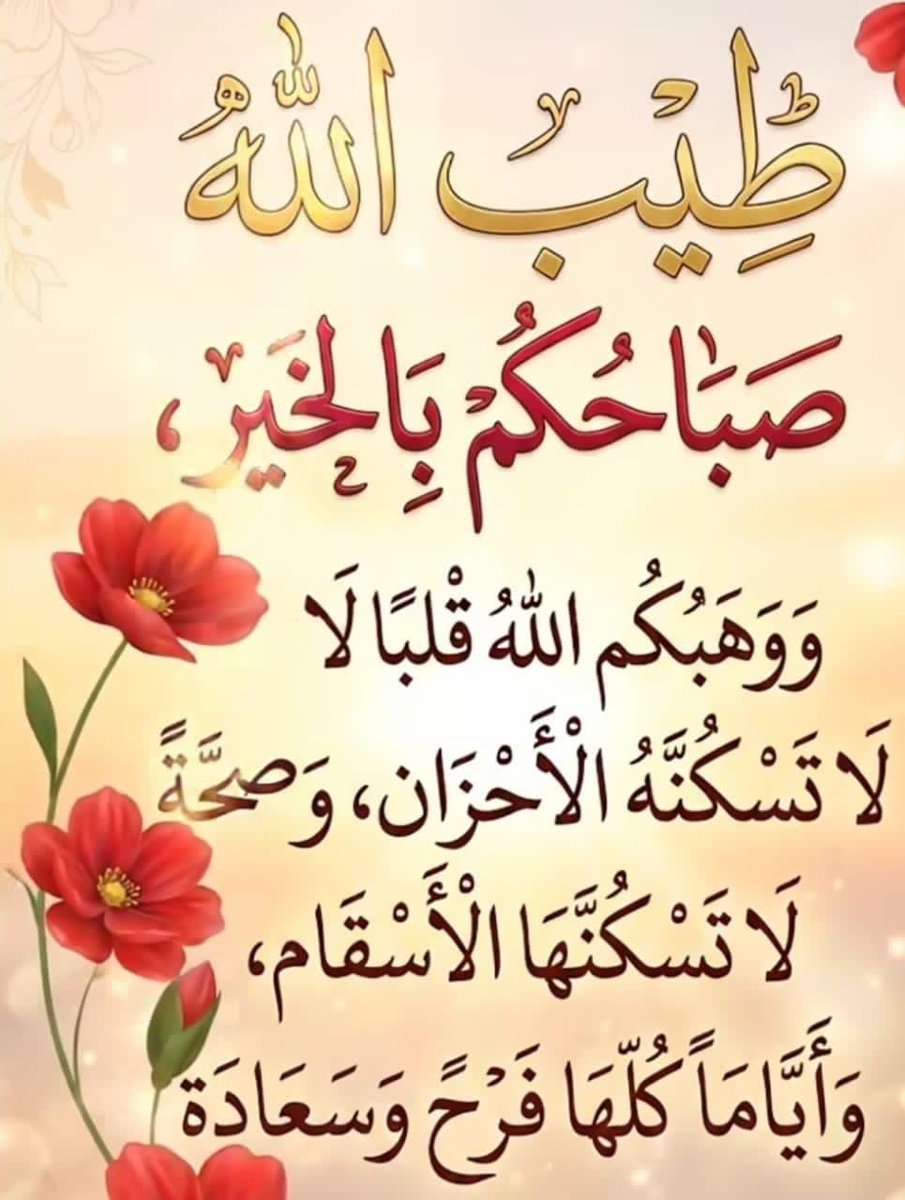 طِيْب اللّٰهُ
صَبَاحُكُمْ بِالخَيْر،
وَوَهَبُكُم اللّٰهُ قْلبًا لَا
لَا تَسْكُنَّهُ الْأَحْزَان، وَصحَّةً
لَا تَسْكُنَّهَا الْأَسْقَام،
وَأَيَّامَاً كُلّهَا فَرْحً وَسَعَادَة